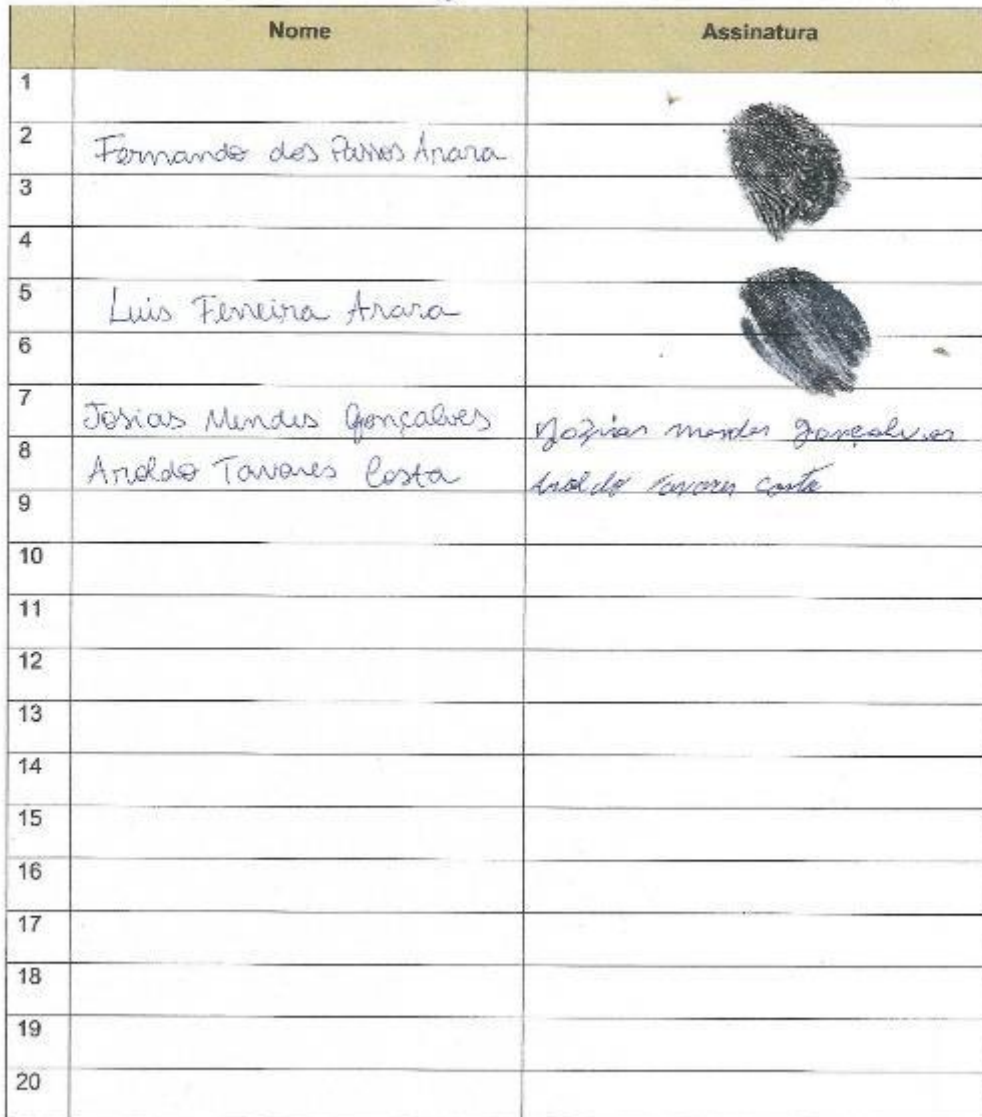 Nome Assinatura
1
2 Fernando dos Passos Arara
3
4
5 Luis Ferreira Arara
6
7 Josias Mendes Gonçalves Jozias mendes gonçalves
8 Aroldo Tavares Costa Aroldo Tavares costa
9
10
11
12
13
14
15
16
17
18
19
20